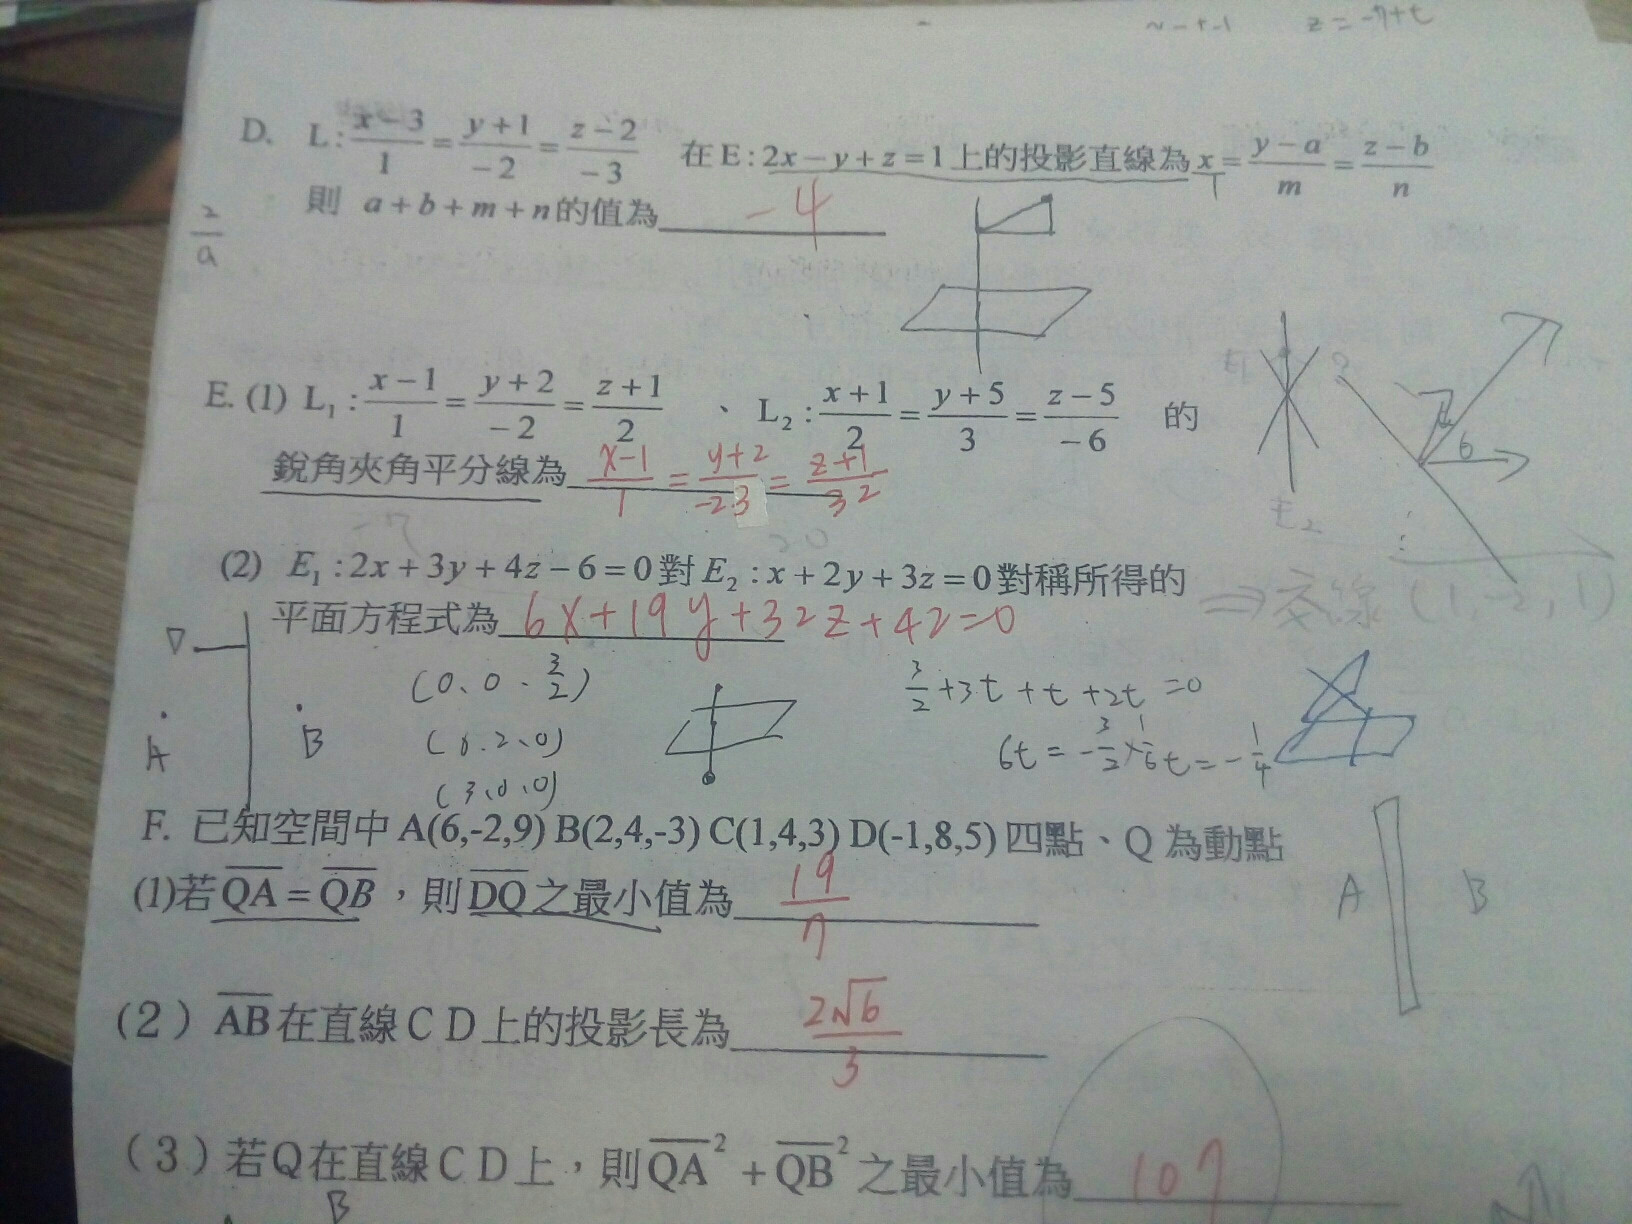 z = -7+t
D. L: \frac{x-3}{1} = \frac{y+1}{-2} = \frac{z-2}{-3} 在E:2x-y+z=1上的投影直線為 x = \frac{y-a}{m} = \frac{z-b}{n}
1
則 a+b+m+n的值為 -4
\frac{2}{a}
E. (1) L₁: \frac{x-1}{1} = \frac{y+2}{-2} = \frac{z+1}{2} 、L₂: \frac{x+1}{2} = \frac{y+5}{3} = \frac{z-5}{-6} 的
銳角夾角平分線為
E₁
E₂
6
(2) E₁:2x+3y+4z-6=0對E₂:x+2y+3z=0對稱所得的
平面方程式為 6x+19y+32z+42=0
⇒交線(1,-2,1)
(0、0、\frac{3}{2})
\frac{3}{2}+3t+t+2t=0
A B
(3、0、0)
F. 已知空間中A(6,-2,9) B(2,4,-3) C(1,4,3) D(-1,8,5) 四點、Q為動點
(1)若\overline{QA}=\overline{QB},則\overline{DQ}之最小值為 \frac{19}{7}
A B
(2) \overline{AB}在直線CD上的投影長為 \frac{2√6}{3}
(3)若Q在直線CD上,則\overline{QA}²+\overline{QB}²之最小值為 107
B